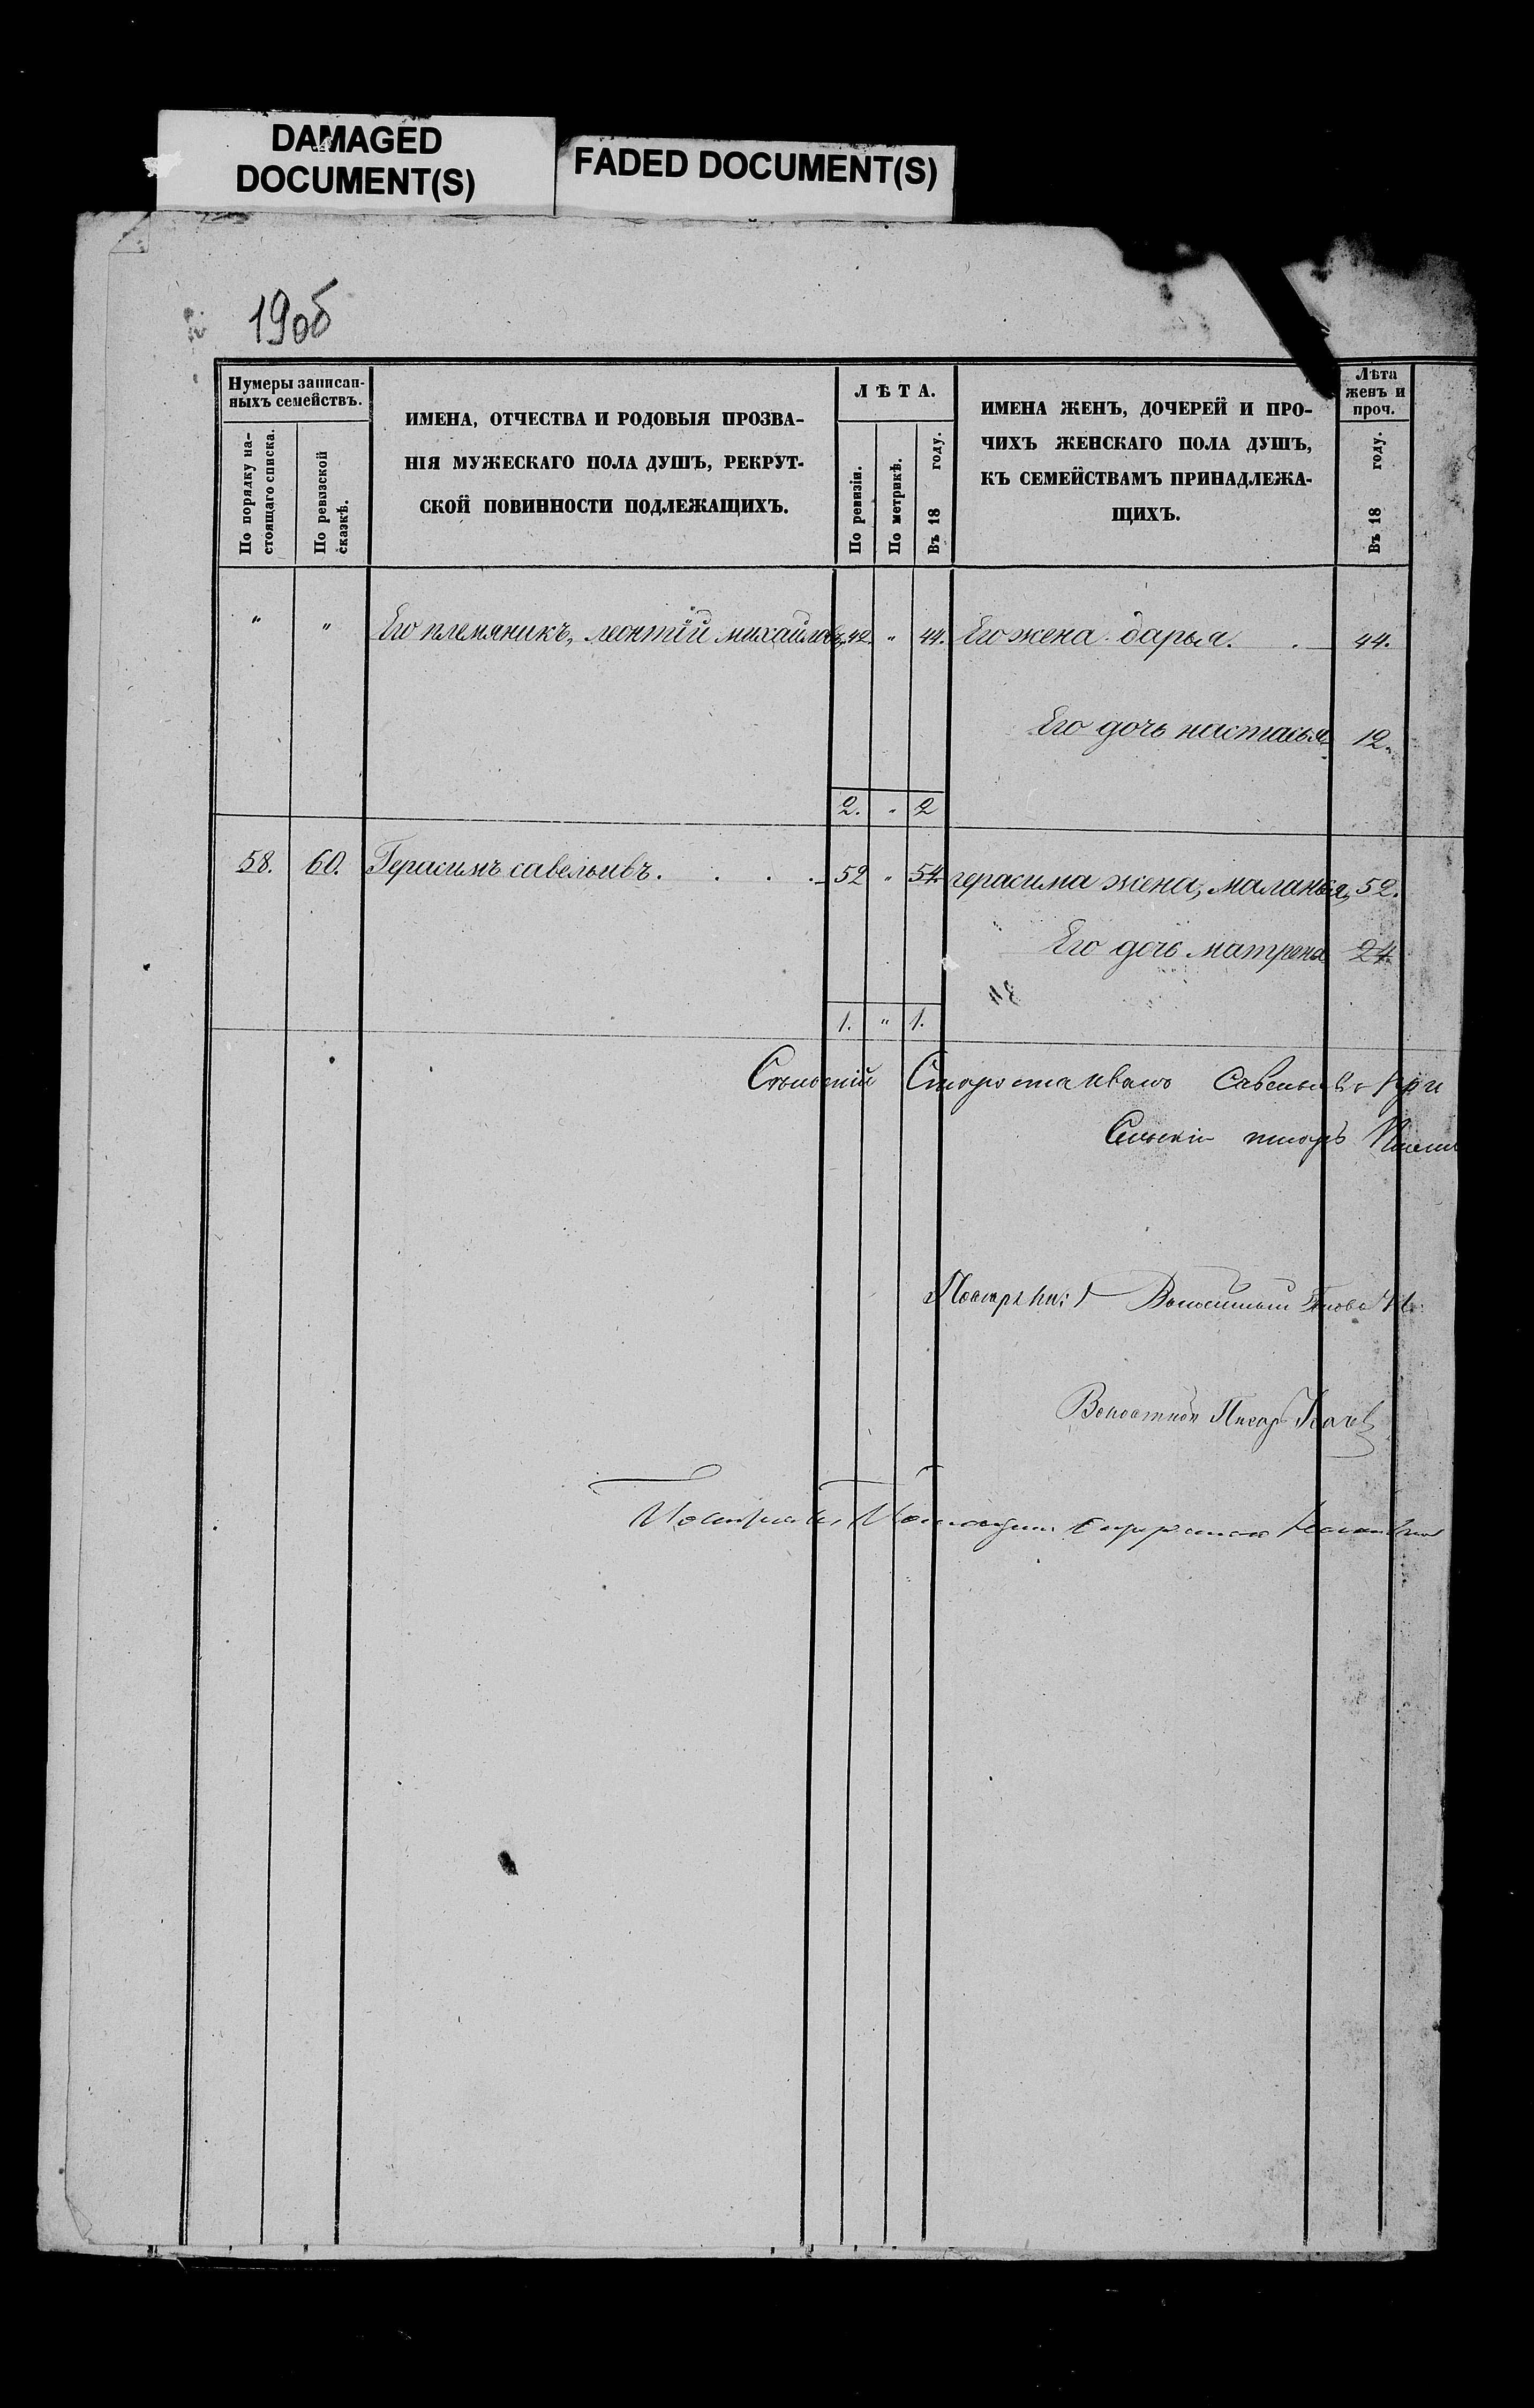 DAMAGED
DOCUMENT(S)
FADED DOCUMENT(S)
190б
Нумеры записан-
ныхъ семействъ.
По порядку на-
стоящаго списка.
По ревизской
сказкѣ.
ИМЕНА, ОТЧЕСТВА И РОДОВЫЯ ПРОЗВА-
НІЯ МУЖЕСКАГО ПОЛА ДУШЪ, РЕКРУТ-
СКОЙ ПОВИННОСТИ ПОДЛЕЖАЩИХЪ.
ЛѢТА.
По ревизіи.
По метрикѣ.
Въ 18 году.
ИМЕНА ЖЕНЪ, ДОЧЕРЕЙ И ПРО-
ЧИХЪ ЖЕНСКАГО ПОЛА ДУШЪ,
КЪ СЕМЕЙСТВАМЪ ПРИНАДЛЕЖА-
ЩИХЪ.
Лѣта
женъ и
проч.
Въ 18 году.
" " Его племяникъ, леонтій михайловъ, 42. " 44. Его жена дарья. . 44.
Его дочь настасья 12.
2. " 2
58. 60. Герасимъ савельивъ. . . . 52 " 54. герасима жена, маланья, 52.
Его дочь матрена 24.
1. " 1.
Староста иванъ Савельивъ при
Сельскій писарь
Волостной
Волостной Писарь